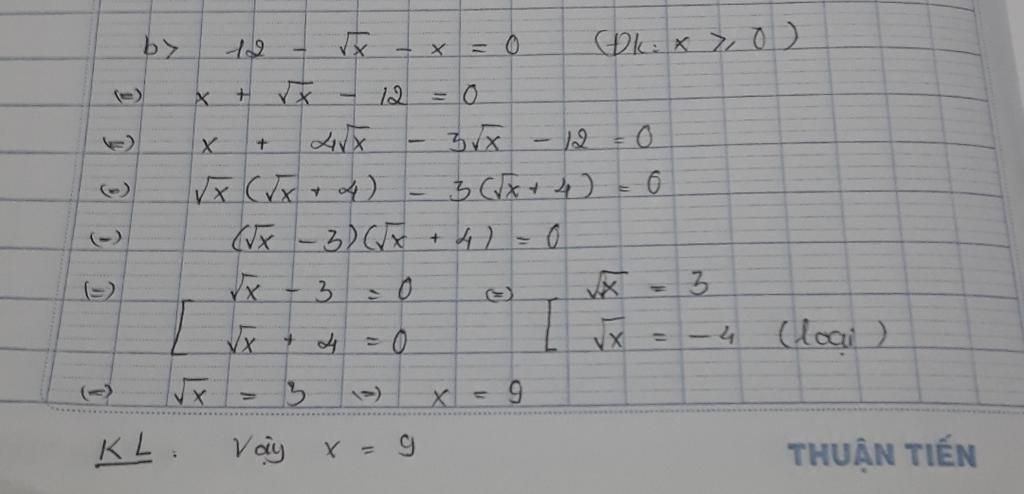 b> 12 - √x - x = 0 (Đk: x ≥ 0)
(=) x + √x - 12 = 0
(=) x + 4√x - 3√x - 12 = 0
(=) √x (√x + 4) - 3(√x + 4) = 0
(=) (√x - 3)(√x + 4) = 0
(=) [ √x - 3 = 0 (=) [ √x = 3
√x + 4 = 0 √x = -4 (loại)
(=) √x = 3 (=) x = 9
KL: Vậy x = 9
THUẬN TIẾN